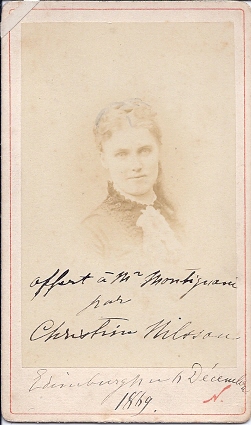 offert à Mr Montignani
par
Christine Nilsson
Edinburgh Décember
1869.
N.